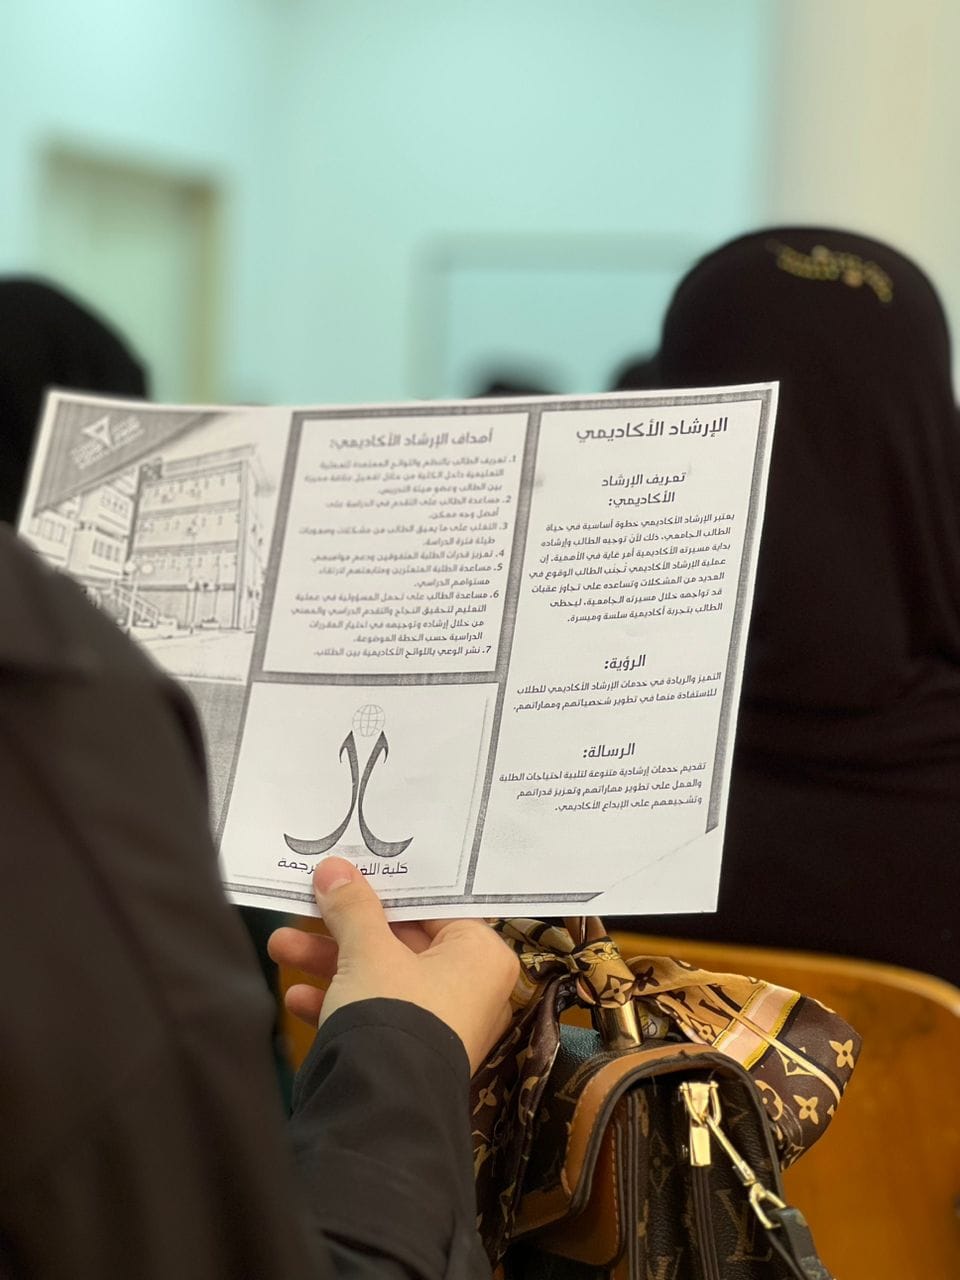 الإرشاد الأكاديمي
تعريف الإرشاد
الأكاديمي:
يعتبر الإرشاد الأكاديمي خطوة أساسية في حياة
الطالب الجامعي، ذلك لأن توجيه الطالب وإرشاده
بداية مسيرته الأكاديمية أمر غاية في الأهمية. إن
عملية الإرشاد الأكاديمي تُجنب الطالب الوقوع في
العديد من المشكلات وتساعده على تجاوز عقبات
قد تواجهه خلال مسيرته الجامعية، ليحظى
الطالب بتجربة أكاديمية سلسة وميسرة.
الرؤية:
التميز والريادة في خدمات الإرشاد الأكاديمي للطلاب
للاستفادة منها في تطوير شخصياتهم ومهاراتهم.
الرسالة:
تقديم خدمات إرشادية متنوعة لتلبية احتياجات الطلبة
والعمل على تطوير مهاراتهم وتعزيز قدراتهم
وتشجيعهم على الإبداع الأكاديمي.
أهداف الإرشاد الأكاديمي:
1. تعريف الطالب بالنظم واللوائح المعتمدة للعملية
التعليمية داخل الكلية من خلال تفعيل علاقة مميزة
بين الطالب وعضو هيئة التدريس.
2. مساعدة الطالب على التقدم في الدراسة على
أفضل وجه ممكن.
3. التغلب على ما يعيق الطالب من مشكلات وصعوبات
طيلة فترة الدراسة.
4. تعزيز قدرات الطلبة المتفوقين ودعم مواهبهم.
5. مساعدة الطلبة المتعثرين ومتابعتهم لارتقاء
مستواهم الدراسي.
6. مساعدة الطالب على تحمل المسؤولية في عملية
التعليم لتحقيق النجاح والتقدم الدراسي والمهني
من خلال إرشاده وتوجيهه في اختيار المقررات
الدراسية حسب الخطة الموضوعة.
7. نشر الوعي باللوائح الأكاديمية بين الطلاب.
كلية اللغا رجمة